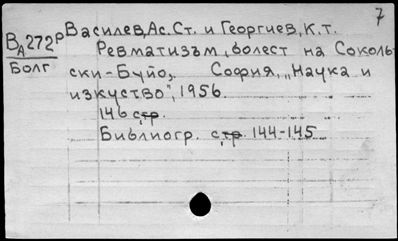 7
Василев, Ас. Ст. и Георгиев, К. Т.
ВА272Р
Болг
Ревматизъм, болест на Соколь-
ски-Буйо, София, „Наука и
изкуство", 1956.
146 стр.
Библиогр. стр. 144-145